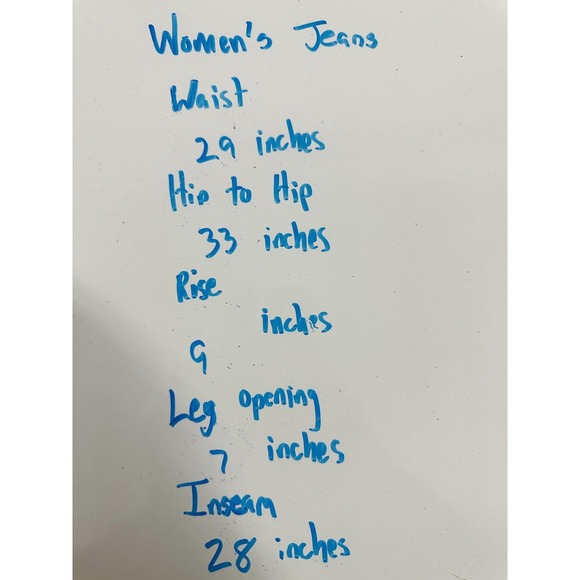 Women's Jeans
Waist
29 inches
Hip to Hip
33 inches
Rise
inches
9
Leg opening
7 inches
Inseam
28 inches